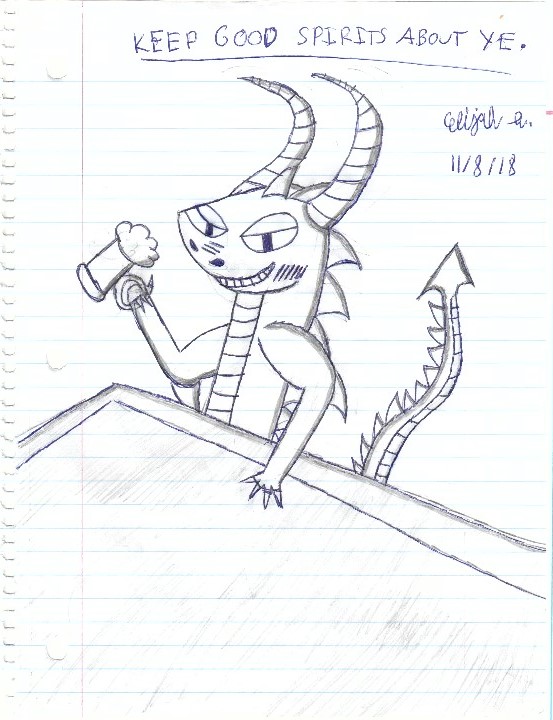 KEEP GOOD SPIRITS ABOUT YE.
Elijah a.
11/8/18